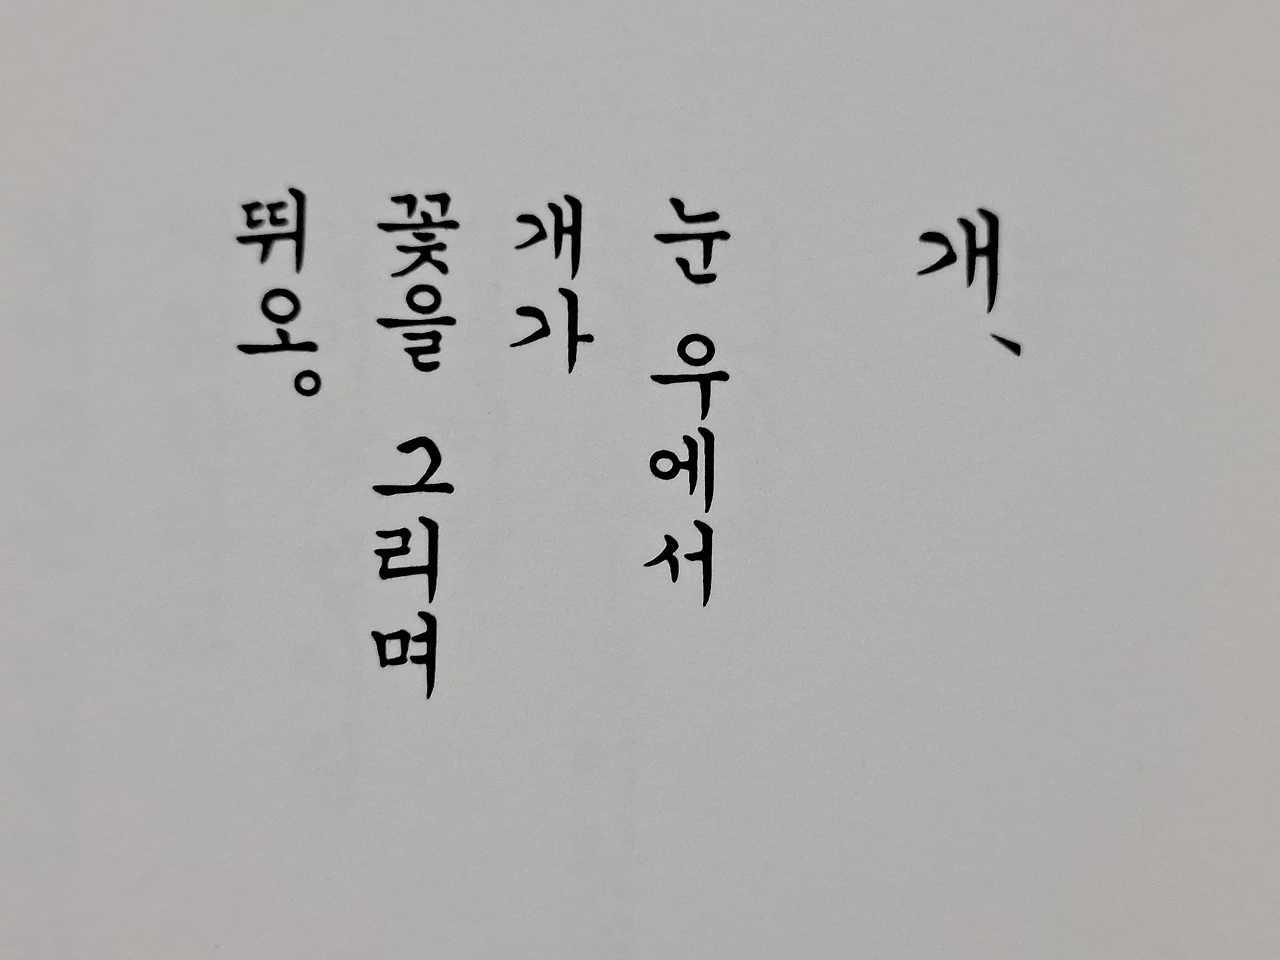 개、
눈 우에서
개가
꽃을 그리며
뛰오。